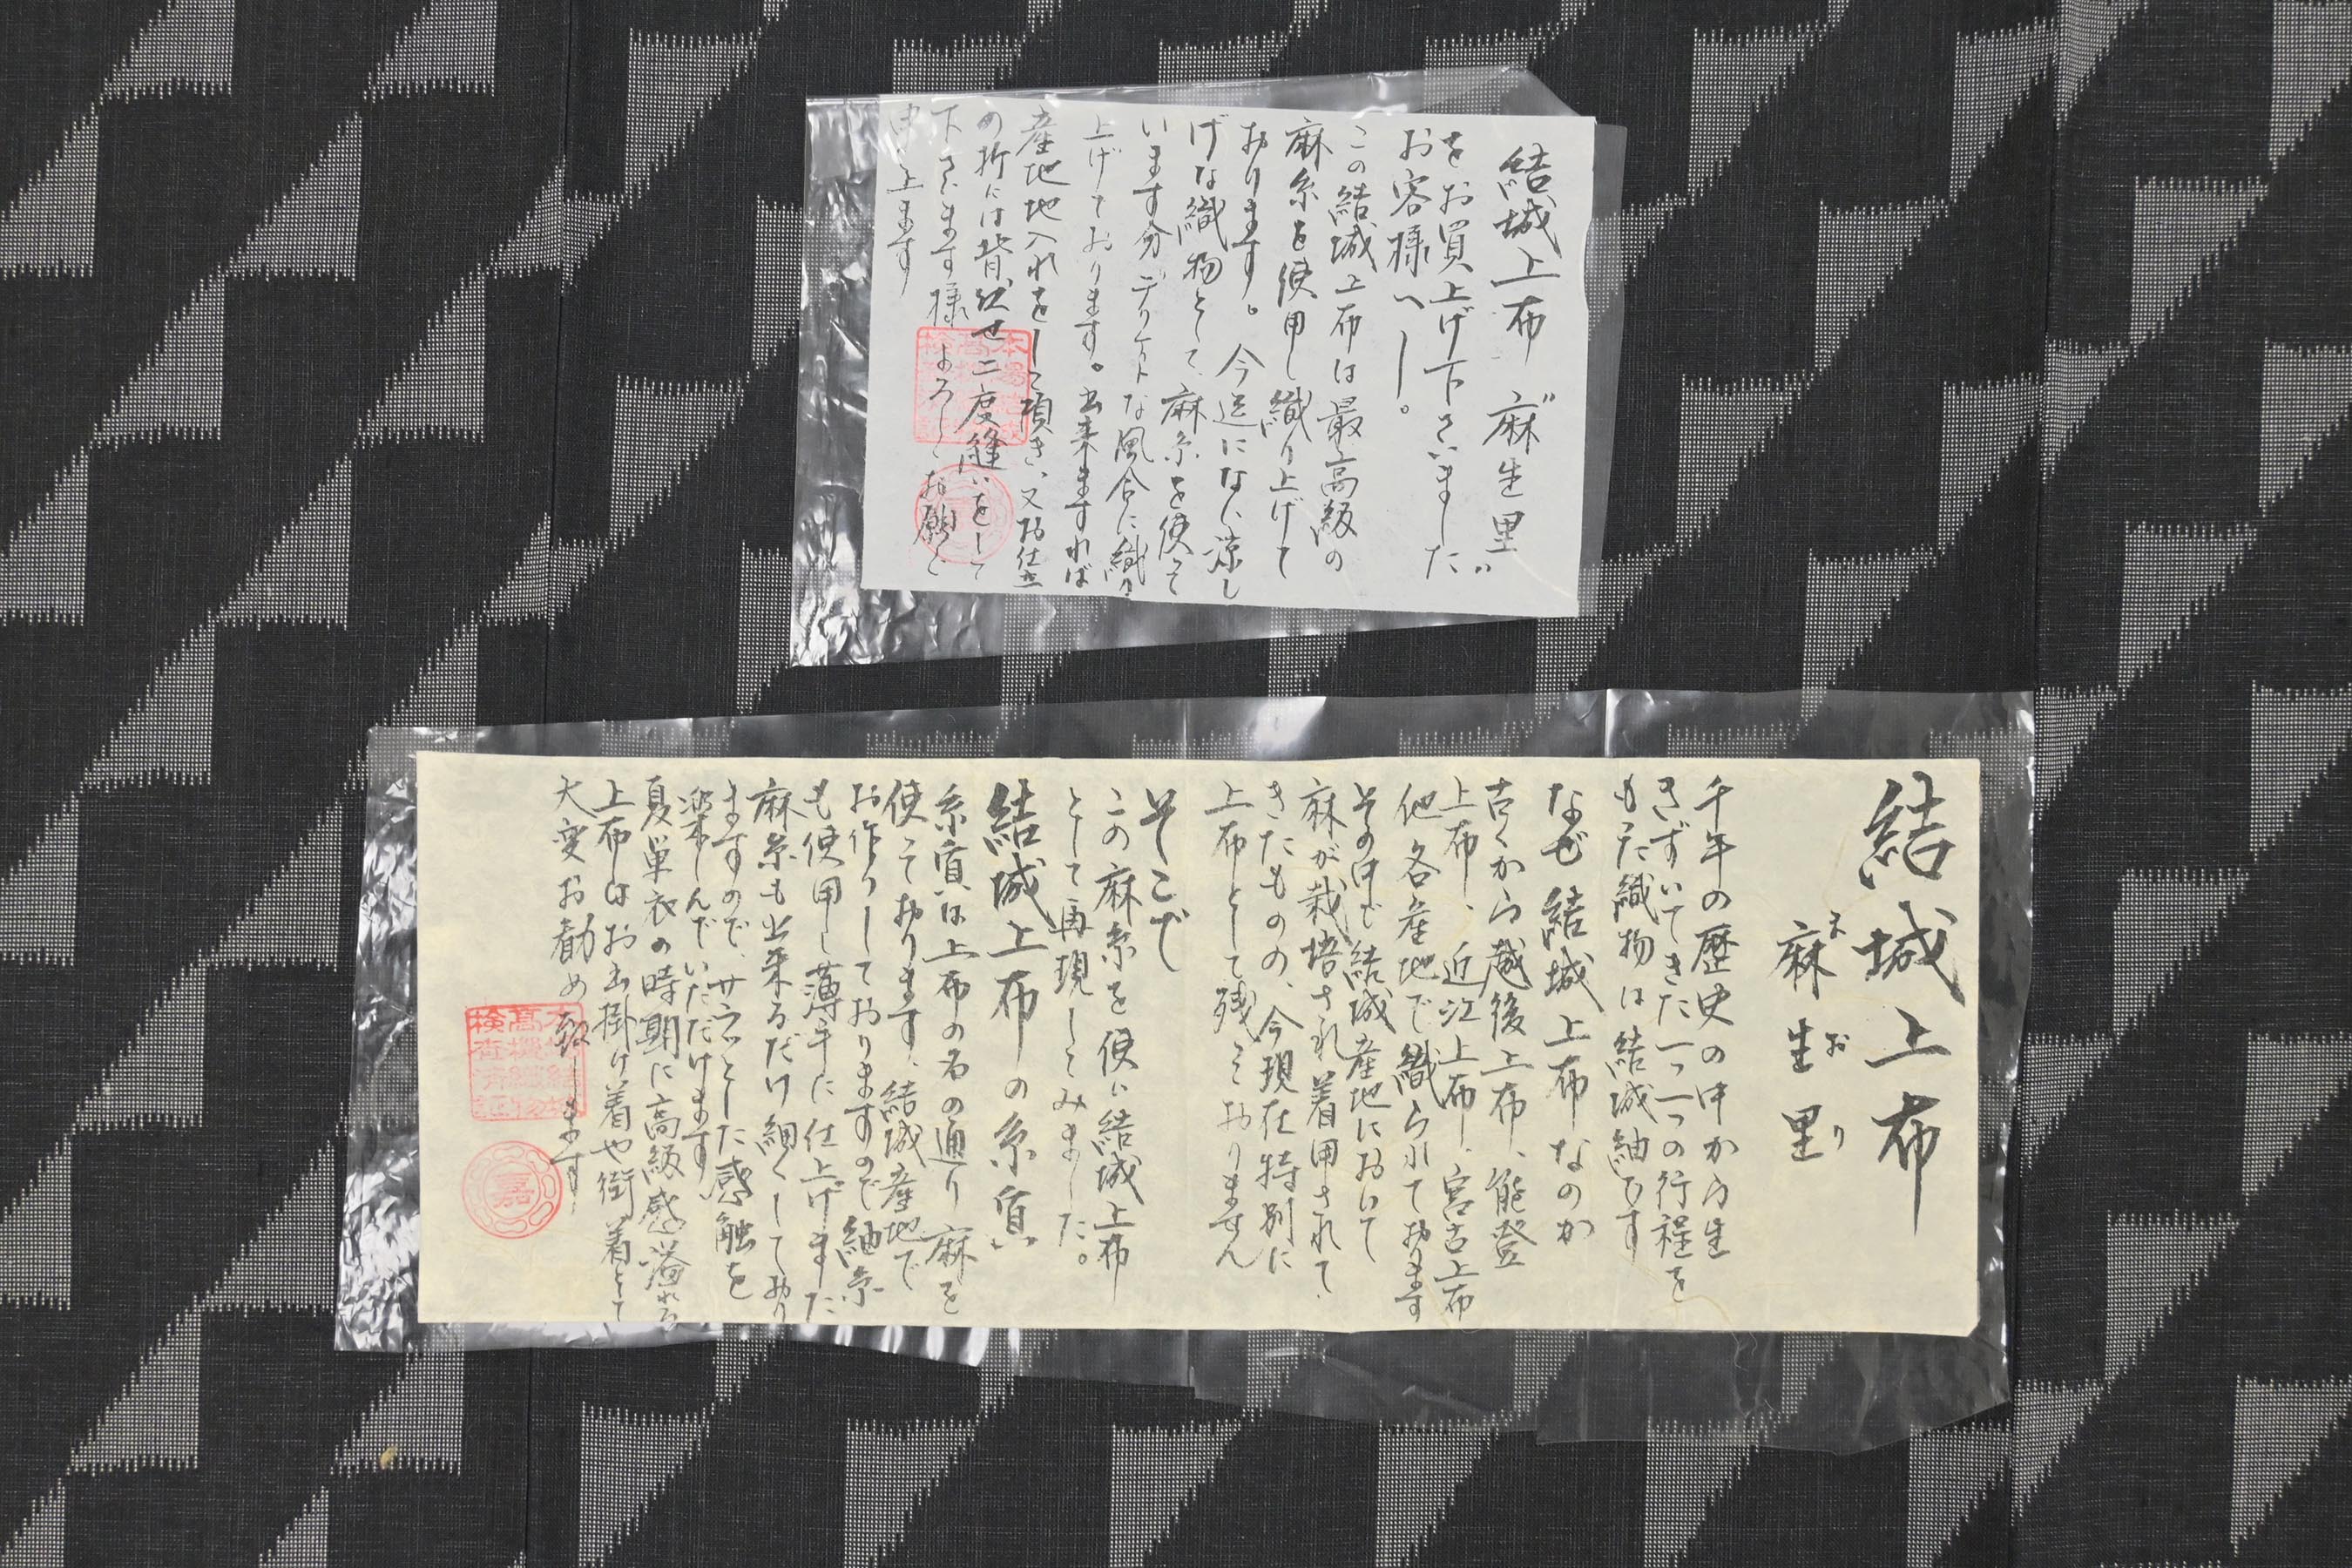 結城上布 "麻生里"
をお買上げ下さいました
お客様へ―。
この結城上布は最高級の
麻糸を使用し織り上げて
おります。今迄にない涼し
げな織物として麻糸を使って
います分デリケートな風合に織り
上げております。出来ますれば
産地地入れをして頂き、又お仕立
の折には背伏せ二度縫いをして
下さいます様よろしくお願い
申し上ます
結城上布
麻生里
まおり
千年の歴史の中から生
きずいてきた一つ一つの行程を
もった織物は結城紬です
なぜ結城上布なのか
古くから越後上布、能登
上布、近江上布、宮古上布
他各産地で織られております
その中でも結城産地において
麻が栽培され着用されて
きたものの、今現在特別に
上布として残っておりません
そこで
この麻糸を使い結城上布
として再現してみました。
結城上布の糸質
糸質は上布の名の通り麻を
使っております、結城産地で
お作りしておりますので紬糸
も使用し薄手に仕上げました
麻糸も出来るだけ細くしており
ますので、サラッとした感触を
楽しんでいただけます
夏単衣の時期に高級感溢れる
上布はお出掛け着や街着として
大変お勧め致します
本場結城
高機織物
検査済証
嘉